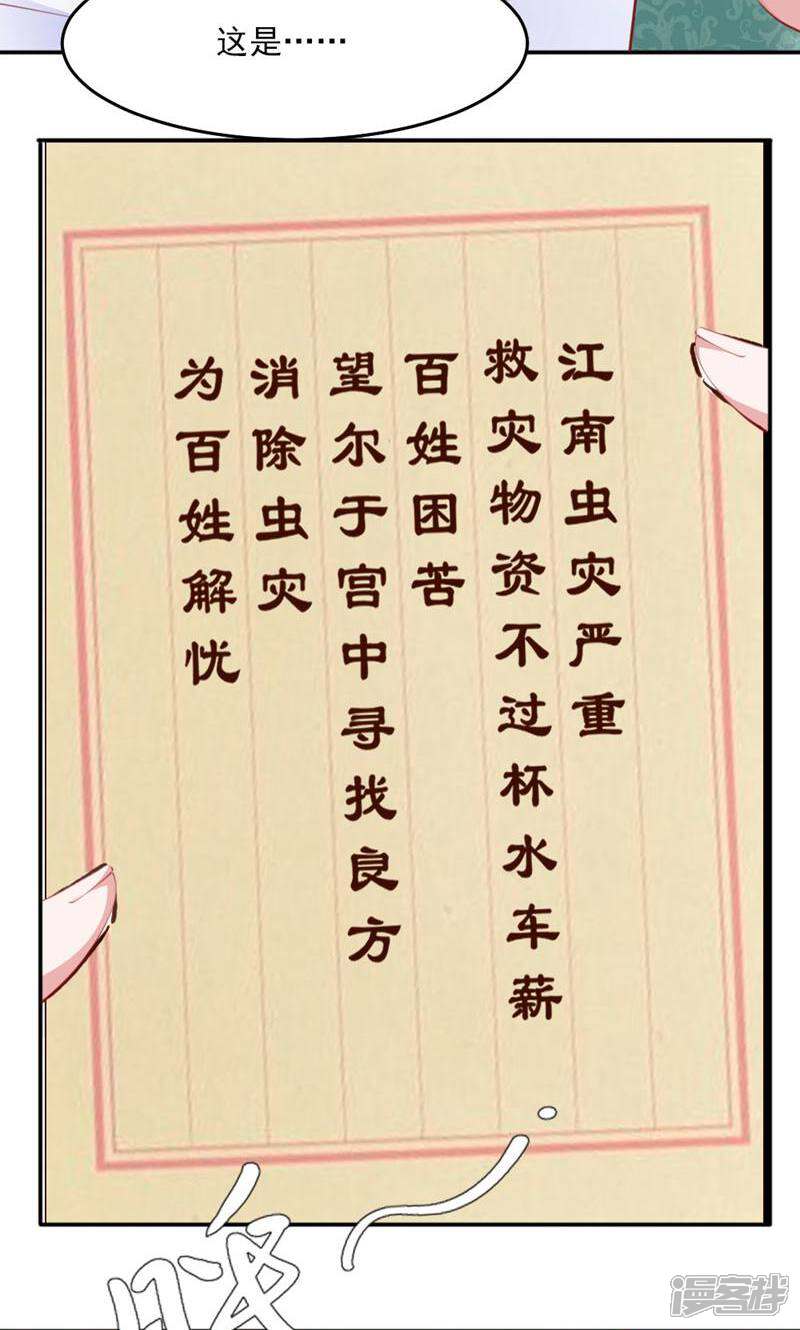 这是……
江南虫灾严重
救灾物资不过杯水车薪
百姓困苦
望尔于宫中寻找良方
消除虫灾
为百姓解忧
漫客栈